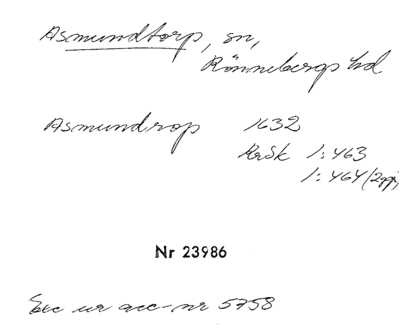 Asmundtorp, sn,
Rönnebergs hd
Asmundrop 1632
KrSk 1:463
1:464 (2ggr)
Nr 23986
Exc ur acc-nr 5758